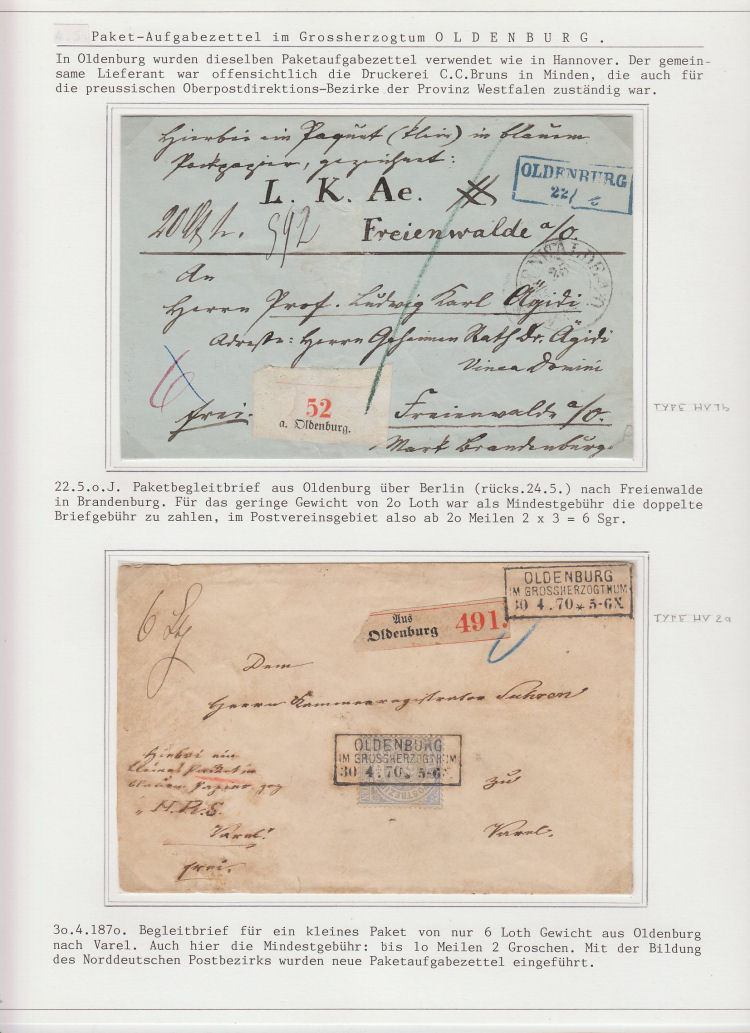 Paket-Aufgabezettel im Grossherzogtum O L D E N B U R G .
In Oldenburg wurden dieselben Paketaufgabezettel verwendet wie in Hannover. Der gemein-
same Lieferant war offensichtlich die Druckerei C.C.Bruns in Minden, die auch für
die preussischen Oberpostdirektions-Bezirke der Provinz Westfalen zuständig war.
Hierbei ein Paquet (klein) in blauem
Packpapier, gezeichnet:
L. K. Ae.
OLDENBURG
22/
Freienwalde a/O.
An
Herrn Prof. Ludwig Karl Agidi
Adresse: Herrn Geheimen Rath Dr. Agidi
Vinea Domini
6
frei.
52
a. Oldenburg.
Freienwalde a/O.
Mark Brandenburg.
TYPE HV 1b
22.5.o.J. Paketbegleitbrief aus Oldenburg über Berlin (rücks.24.5.) nach Freienwalde
in Brandenburg. Für das geringe Gewicht von 2o Loth war als Mindestgebühr die doppelte
Briefgebühr zu zahlen, im Postvereinsgebiet also ab 2o Meilen 2 x 3 = 6 Sgr.
OLDENBURG
IM GROSSHERZOGTHUM
30 4.70 * 5-6N.
6
Aus
Oldenburg
491.
TYPE HV 2a
Dem
Herrn Kammerregistrator Suhren
OLDENBURG
IM GROSSHERZOGTHUM
30 4.70 * 5-6N.
Hiebei ein
kleines Packet in
blauem Papier gez
H.R.S.
Varel.
frei.
zu
Varel.
3o.4.187o. Begleitbrief für ein kleines Paket von nur 6 Loth Gewicht aus Oldenburg
nach Varel. Auch hier die Mindestgebühr: bis 1o Meilen 2 Groschen. Mit der Bildung
des Norddeutschen Postbezirks wurden neue Paketaufgabezettel eingeführt.